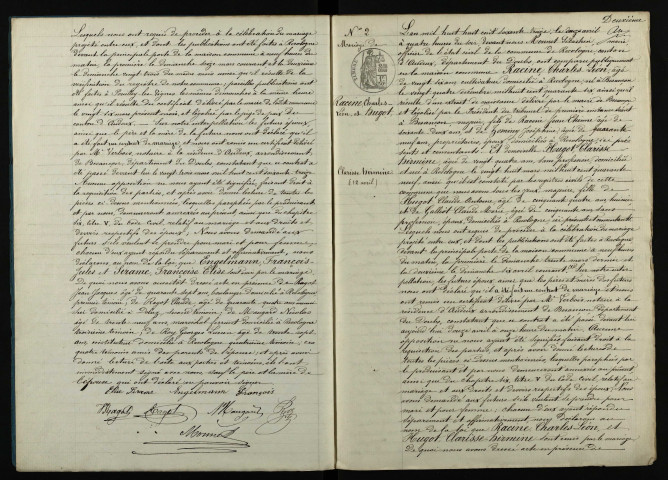 Lesquels nous ont requis de procéder à la célébration du mariage
projeté entre eux, et dont les publications ont été faites à Recologne
devant la principale porte de la maison commune, à neuf heures du
matin, la première le dimanche seize mars courant et la deuxième
le dimanche vingt trois du même mois
vérification du registre de notre commune; pareilles publications ont
été faites à Pouilley les Vignes les mêmes dimanches à la même heure
ainsi qu'il résulte du certificat délivré par le maire de la dite commune
le vingt six mars présent mois, et légalisé par le juge de paix du
canton d'Audeux. Sur notre interpellation les futurs époux,
ainsi que le père et la mère de la future nous ont déclaré qu'il
a été fait un contrat de mariage et nous ont remis un certificat délivré
par Mr notaire à la résidence d'Audeux, arrondissement
de Besançon, département du Doubs constatant que ce contrat a
été passé devant lui le vingt trois mars mil huit cent soixante treize
Aucune opposition ne nous ayant été signifiée, faisant droit à
la réquisition des parties, et après avoir donné lecture de toutes les
pièces ci dessus mentionnées, lesquelles paraphées par le produisant
et par nous, demeureront annexées au présent ainsi que du chapitre
six, titre V, du Code civil relatif au mariage et aux droits et
devoirs respectifs des époux; Nous avons demandé aux
futurs s'ils veulent se prendre pour mari et pour femme,
chacun d'eux ayant répondu séparément et affirmativement, nous
déclarons au nom de la loi que Engelmann, François
Jules et Serame, Françoise Elise sont unis par le mariage.
De quoi nous avons aussitôt dressé acte en présence de Magot
Jean Jacques âgé de quarante sept ans, boulanger domicilié à Recologne
premier témoin, de Ragot Claude, âgé de quarante quatre ans
domicilié à second témoin, de Maugard Nicolas
âgé de trente neuf ans, maréchal ferrant domicilié à Recologne
troisième témoin, de Rey Georges âgé de trente sept
ans instituteur domicilié à Recologne quatrième témoin, ces
quatre témoins amis des parents de l'épouse; et après avoir
donné lecture de l'acte aux parties et témoins, ils l'ont
immédiatement signé avec nous, sauf le père et la mère de
l'épouse, qui ont déclaré ne pouvoir signer.
Elise Serame Engelmann François
Magot Ragot Maugard Rey
Monnot
Deuxième
N° 2
Mariage de
Racine, Charles-
Léon et Hugot,
Clarisse Hermine
(12 avril)
L'an mil huit cent soixante treize, le douze avril
à quatre heures du soir, devant nous Monnot Sébastien
officier de l'état civil de la commune de Recologne, canton
d'Audeux, département du Doubs, ont comparu publiquement
en la maison commune: Racine, Charles-Léon, âgé
de vingt sept ans cultivateur domicilié à Recologne, né à Besançon
le vingt quatre décembre mil huit cent quarante six ainsi qu'il
résulte d'un extrait de naissance délivré par le maire de Besançon
et légalisé par le Président du Tribunal de première instance séant
à Besançon, majeur, fils de Racine Jean Etienne âgé de
soixante deux ans, et de Josephine, âgée de quarante
neuf ans, propriétaires, domiciliés à Recologne, ici présents
et consentants. Et demoiselle Hugot, Clarisse
Hermine, âgée de vingt quatre ans, sans profession, domiciliée
et née à Recologne, le vingt huit mars mil huit cent quarante
neuf, ainsi que le tout constaté par les registres civils de cette
commune que nous avons sous les yeux, majeure, fille de
Hugot Claude Antoine, âgé de cinquante quatre ans
et de Galliot Claude Marie, âgée de cinquante ans sans
profession, domiciliés à Recologne, ici présents et consentants.
Lesquels nous ont requis de procéder à la célébration du mariage
projeté entre eux, et dont les publications ont été faites à Recologne
devant la principale porte de la maison commune, à neuf heures
du matin, la première le dimanche trente mars dernier et
la deuxième le dimanche six avril courant. Sur notre inter-
pellation, les futurs époux, ainsi que les père et mère des futurs
nous ont déclaré qu'il a été fait un contrat de mariage et nous
ont remis un certificat délivré par Mr notaire à la
résidence d'Audeux arrondissement de Besançon, département
du Doubs, constatant que ce contrat a été passé devant lui
aujourd'hui douze avril à onze heures du matin. Aucune
opposition ne nous ayant été signifiée, faisant droit à la
réquisition des parties, et après avoir donné lecture de
toutes les pièces ci dessus mentionnées, lesquelles paraphées par
le produisant et par nous demeureront annexées au présent,
ainsi que du chapitre six, titre V du Code civil, relatif au
mariage et aux droits et devoirs respectifs des époux; Nous
avons demandé aux futurs s'ils veulent se prendre pour
mari et pour femme; chacun d'eux ayant répondu
séparément et affirmativement, nous déclarons au
nom de la loi que Racine, Charles-Léon, et
Hugot, Clarisse-Hermine sont unis par le mariage.
De quoi nous avons dressé acte en présence de